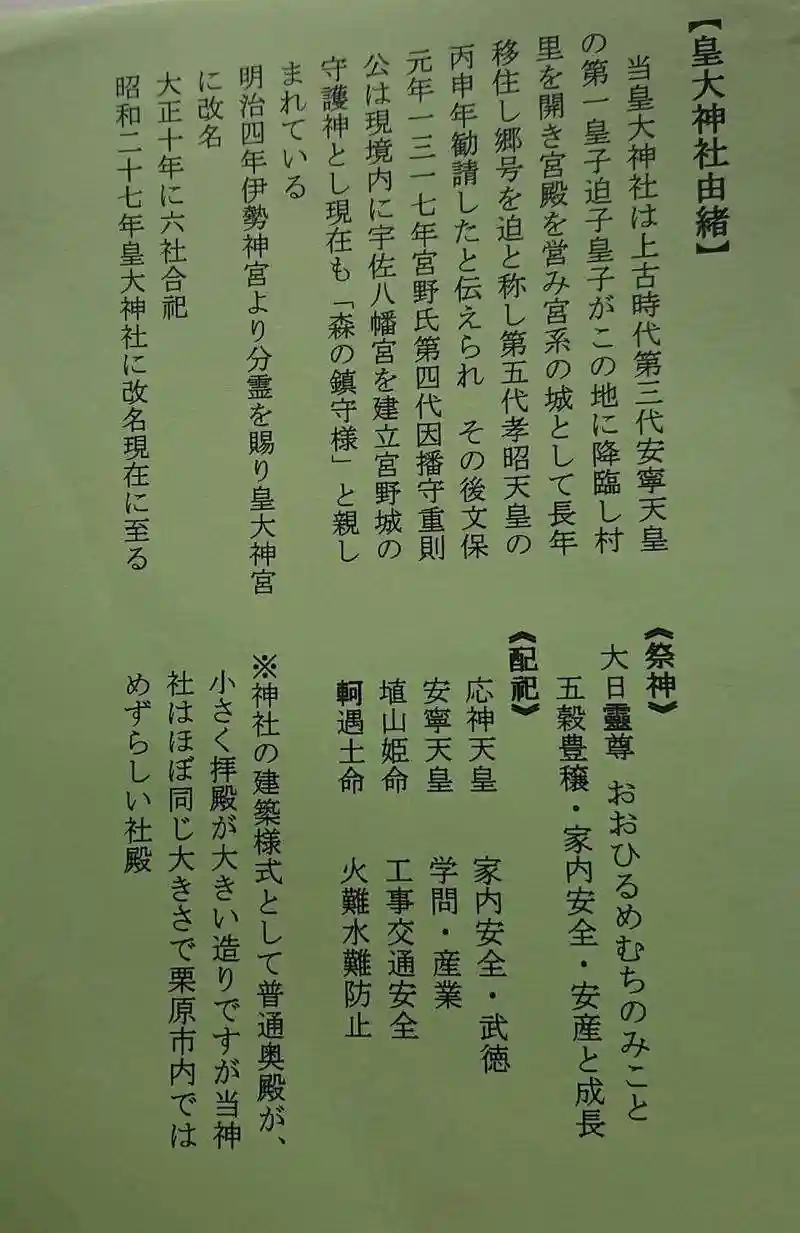 【皇大神社由緒】
当皇大神社は上古時代第三代安寧天皇
の第一皇子迫子皇子がこの地に降臨し村
里を開き宮殿を営み宮系の城として長年
移住し郷号を迫と称し第五代孝昭天皇の
丙申年勧請したと伝えられ その後文保
元年一三一七年宮野氏第四代因播守重則
公は現境内に宇佐八幡宮を建立宮野城の
守護神とし現在も「森の鎮守様」と親し
まれている
明治四年伊勢神宮より分霊を賜り皇大神宮
に改名
大正十年に六社合祀
昭和二十七年皇大神社に改名現在に至る
《祭神》
大日靈尊 おおひるめむちのみこと
五穀豊穣・家内安全・安産と成長
《配祀》
応神天皇 家内安全・武徳
安寧天皇 学問・産業
埴山姫命 工事交通安全
軻遇土命 火難水難防止
※神社の建築様式として普通奥殿が、
小さく拝殿が大きい造りですが当神
社はほぼ同じ大きさで栗原市内では
めずらしい社殿